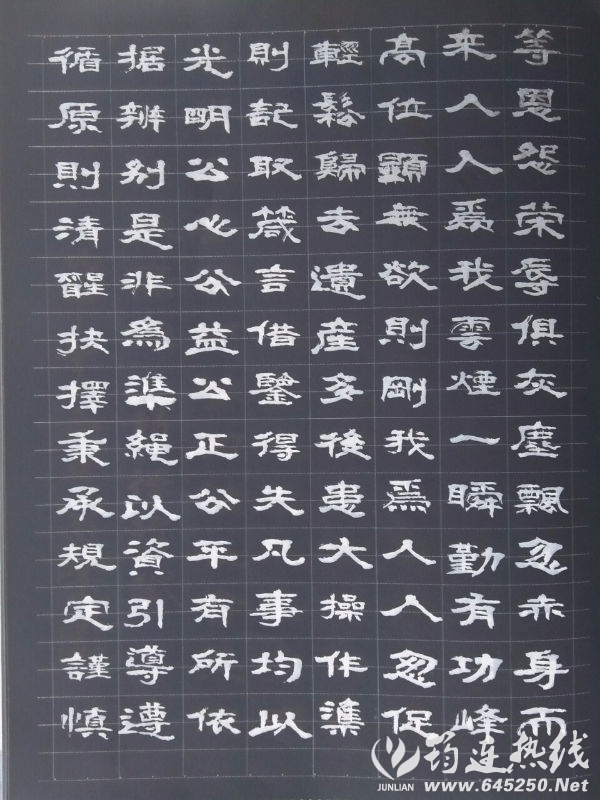 等恩怨荣辱俱灰塵飄忽赤身而
来人人爲我雲煙一瞬勤有功峰
高位顯無欲則剛我爲人人忽促
輕鬆歸去遺産多後患大操作準
則記取箴言借鑒得失凡事均以
光明公心公益公正公平有所依
据辨别是非為準繩以資引導遵
循原則清醒抉擇秉承規定謹慎
筠连热线
JUNLIAN www.645250.Net